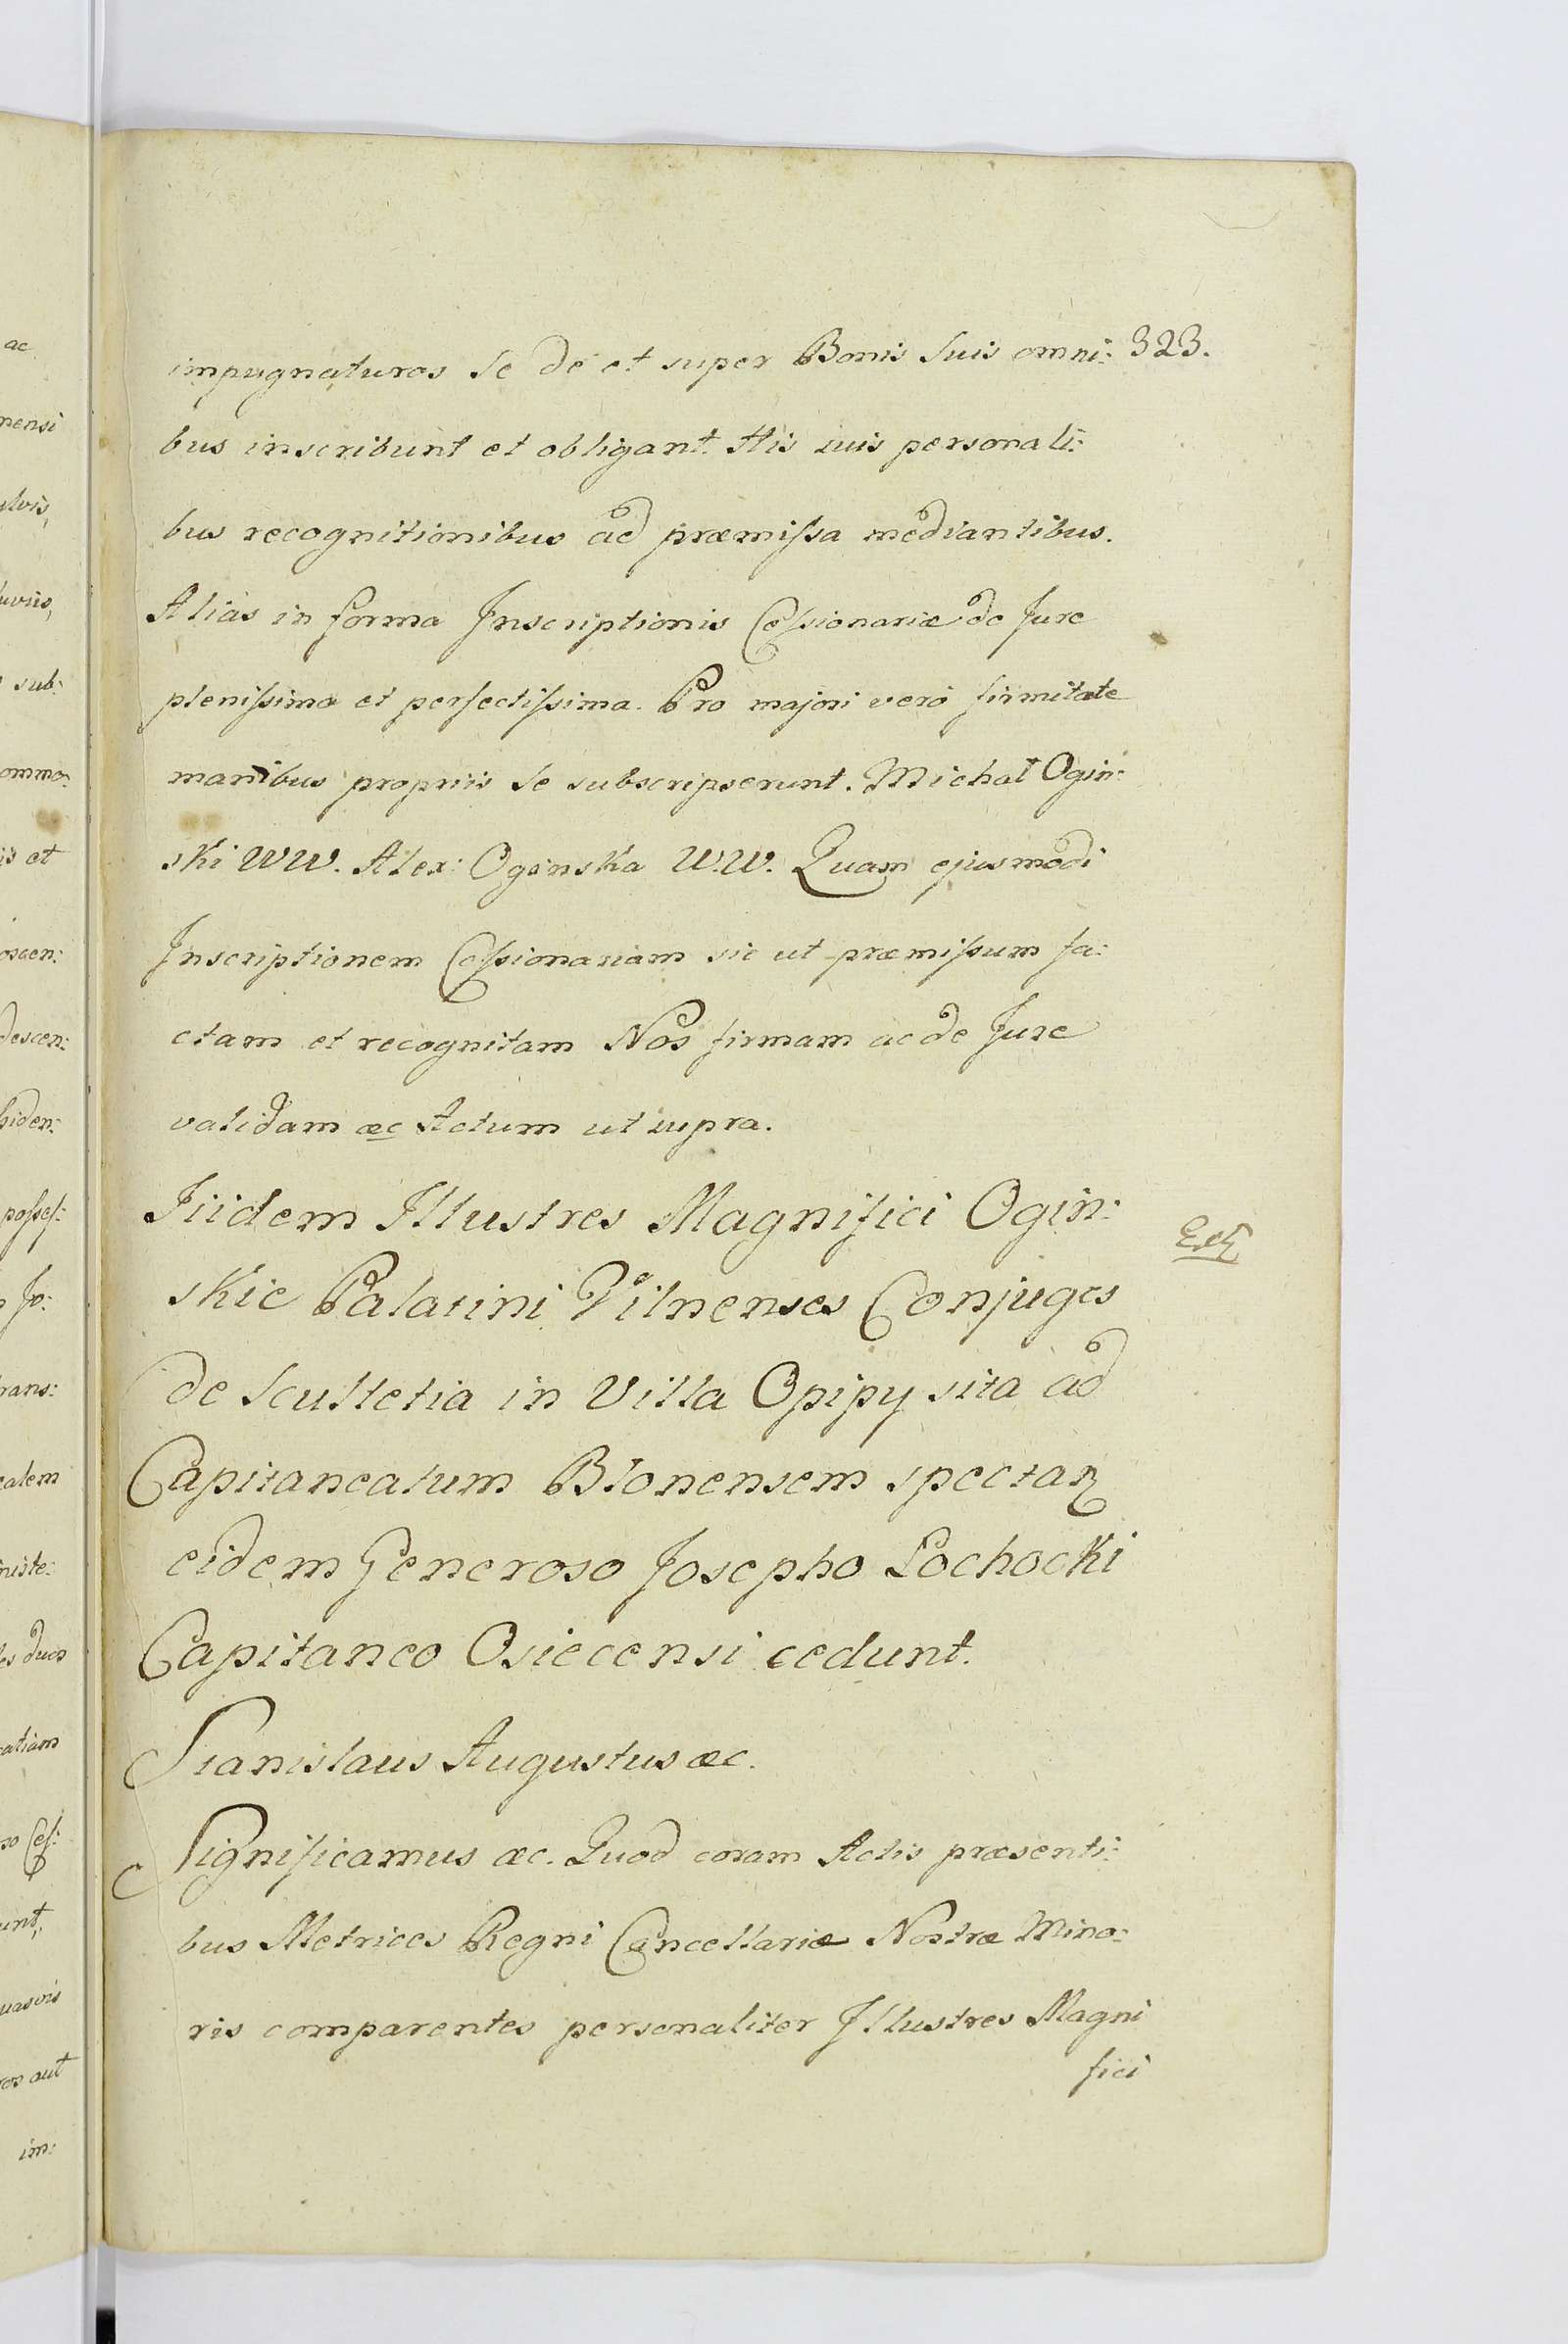 323.
impugnaturos Se de et super Bonis Suis omni:
bus inscribunt et obligant. His suis personali:
bus recognitionibus ad præmiſsa mediantibus.
Alias in forma Inscriptionis Ceſsionariæ de Jure
pleniſsima et perfectiſsima. Pro majori vero firmitate
manibus propriis Se subscripserunt. Michał Ogin:
ski WW. Alex: Oginska W.W. Quam ejusmodi
Inscriptionem Ceſsionariam sic ut præmiſsum fa:
ctam et recognitam Nos firmam ac de Jure
validam æc Actum ut supra.
Iiidem Illustres Magnifici Ogin:
skie Palatini Vilnenses Conjuges
de Scultetia in Villa Opipy sita ad
Capitaneatum Blonensem spectan
eidem Generoso Josepho Lochocki
Capitaneo Osiecensi cedunt.
Stanislaus Augustus æc.
Significamus æc. Quod coram Actis præsenti:
bus Metrices Regni Cancellariæ Nostræ Mino:
ris comparentes personaliter Illustres Magni
fici
ac
nensi
sub:
ommo:
is et
oscen:
descen:
hiden:
poſseſ:
Jo:
rans:
calem
niste:
es duos
catiam
so Ceſ:
unt,
uasvis
ros aut
im: